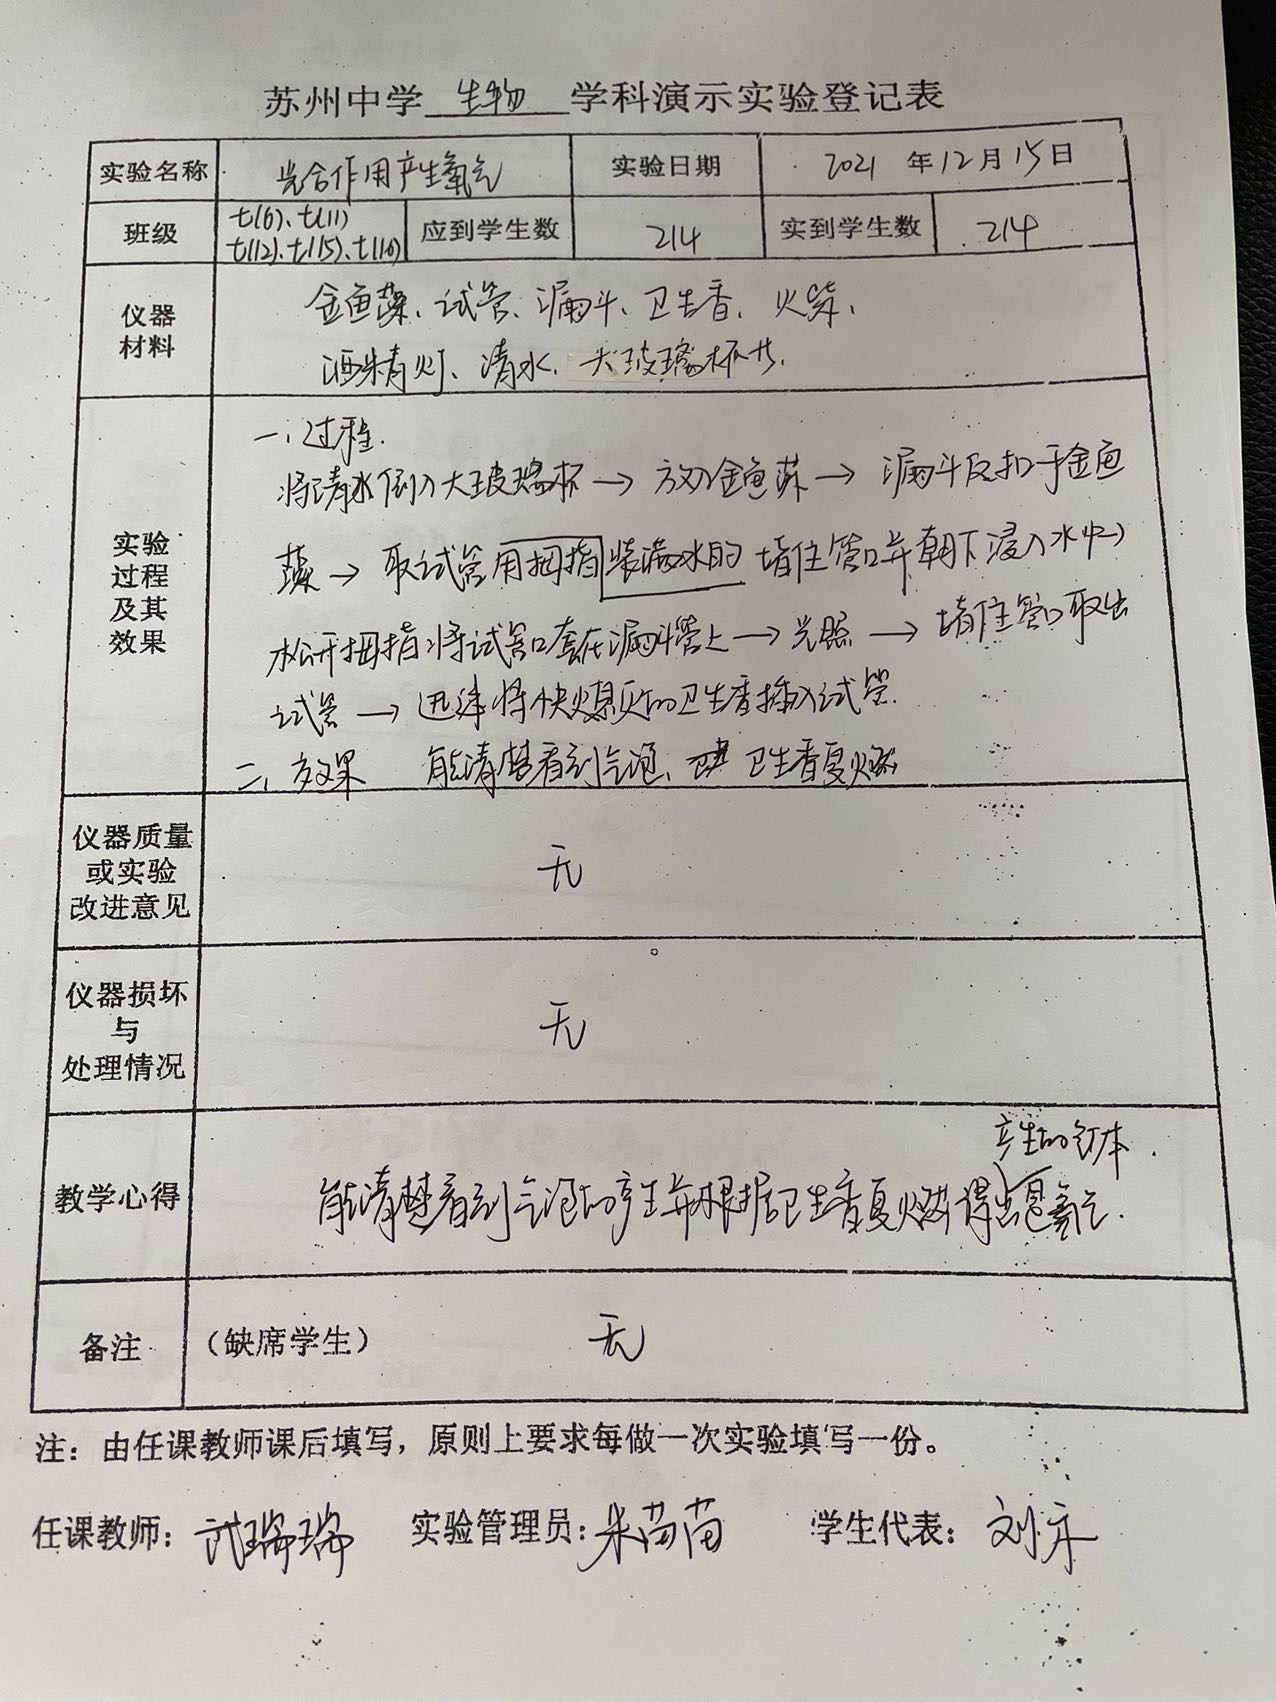 苏州中学 生物 学科演示实验登记表
实验名称 光合作用产生氧气 实验日期 2021 年 12 月 15 日
班级 七(6)、七(11)
七(12)、七(15)、七(16) 应到学生数 214 实到学生数 214
仪器
材料
金鱼藻、试管、漏斗、卫生香、火柴、
酒精灯、清水、大玻璃杯
实验
过程
及其
效果
一、过程.
将清水倒入大玻璃杯→放入金鱼藻→漏斗反扣于金鱼
藻→取试管用拇指装满水的堵住管口并朝下浸入水中
松开拇指将试管口套在漏斗管上→光照→堵住管口取出
试管→迅速将快熄灭的卫生香插入试管.
二、效果 能清楚看到气泡、卫生香复燃
仪器质量
或实验
改进意见
无
仪器损坏
与
处理情况
无
教学心得
产生的气体.
能清楚看到气泡的产生并根据卫生香复燃得出是氧气.
备注 (缺席学生) 无
注：由任课教师课后填写，原则上要求每做一次实验填写一份。
任课教师：武瑞瑞 实验管理员：朱苗苗 学生代表：刘